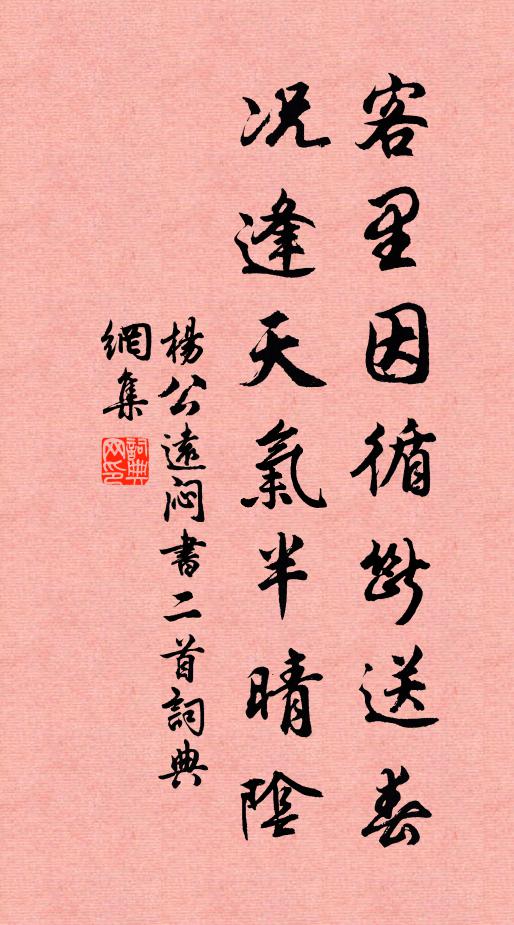 客里因循斷送春
况逢天氣半晴陰
楊公遠悶書二首詞典
網集
詞典
网印